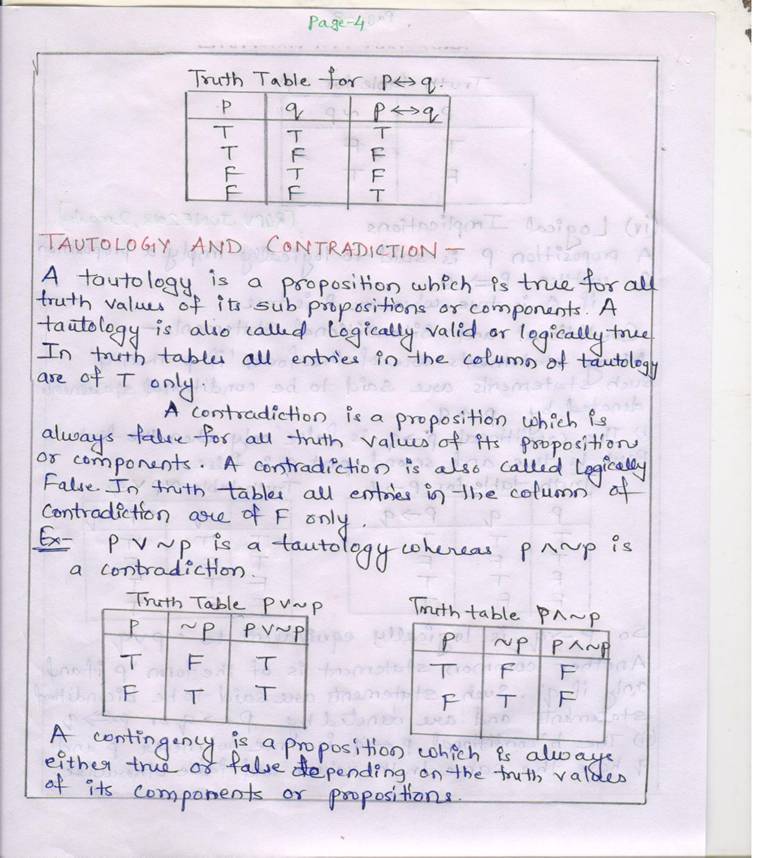 Page-4
Truth Table for p↔q.
P q P↔q
T T T
T F F
F T F
F F T
TAUTOLOGY AND CONTRADICTION -
A tautology is a proposition which is true for all
truth values of its sub propositions or components. A
tautology is also called logically valid or logically true.
In truth tables all entries in the column of tautology
are of T only.
A contradiction is a proposition which is
always false for all truth values of its proposition
or components. A contradiction is also called Logically
False. In truth tables all entries in the column of
contradiction are of F only.
Ex- p ∨ ~p is a tautology whereas p ∧ ~p is
a contradiction.
Truth Table p∨~p
P ~P P∨~P
T F T
F T T
Truth table p∧~p
P ~P P∧~P
T F F
F T F
A contingency is a proposition which is always
either true or false depending on the truth values
of its components or propositions.